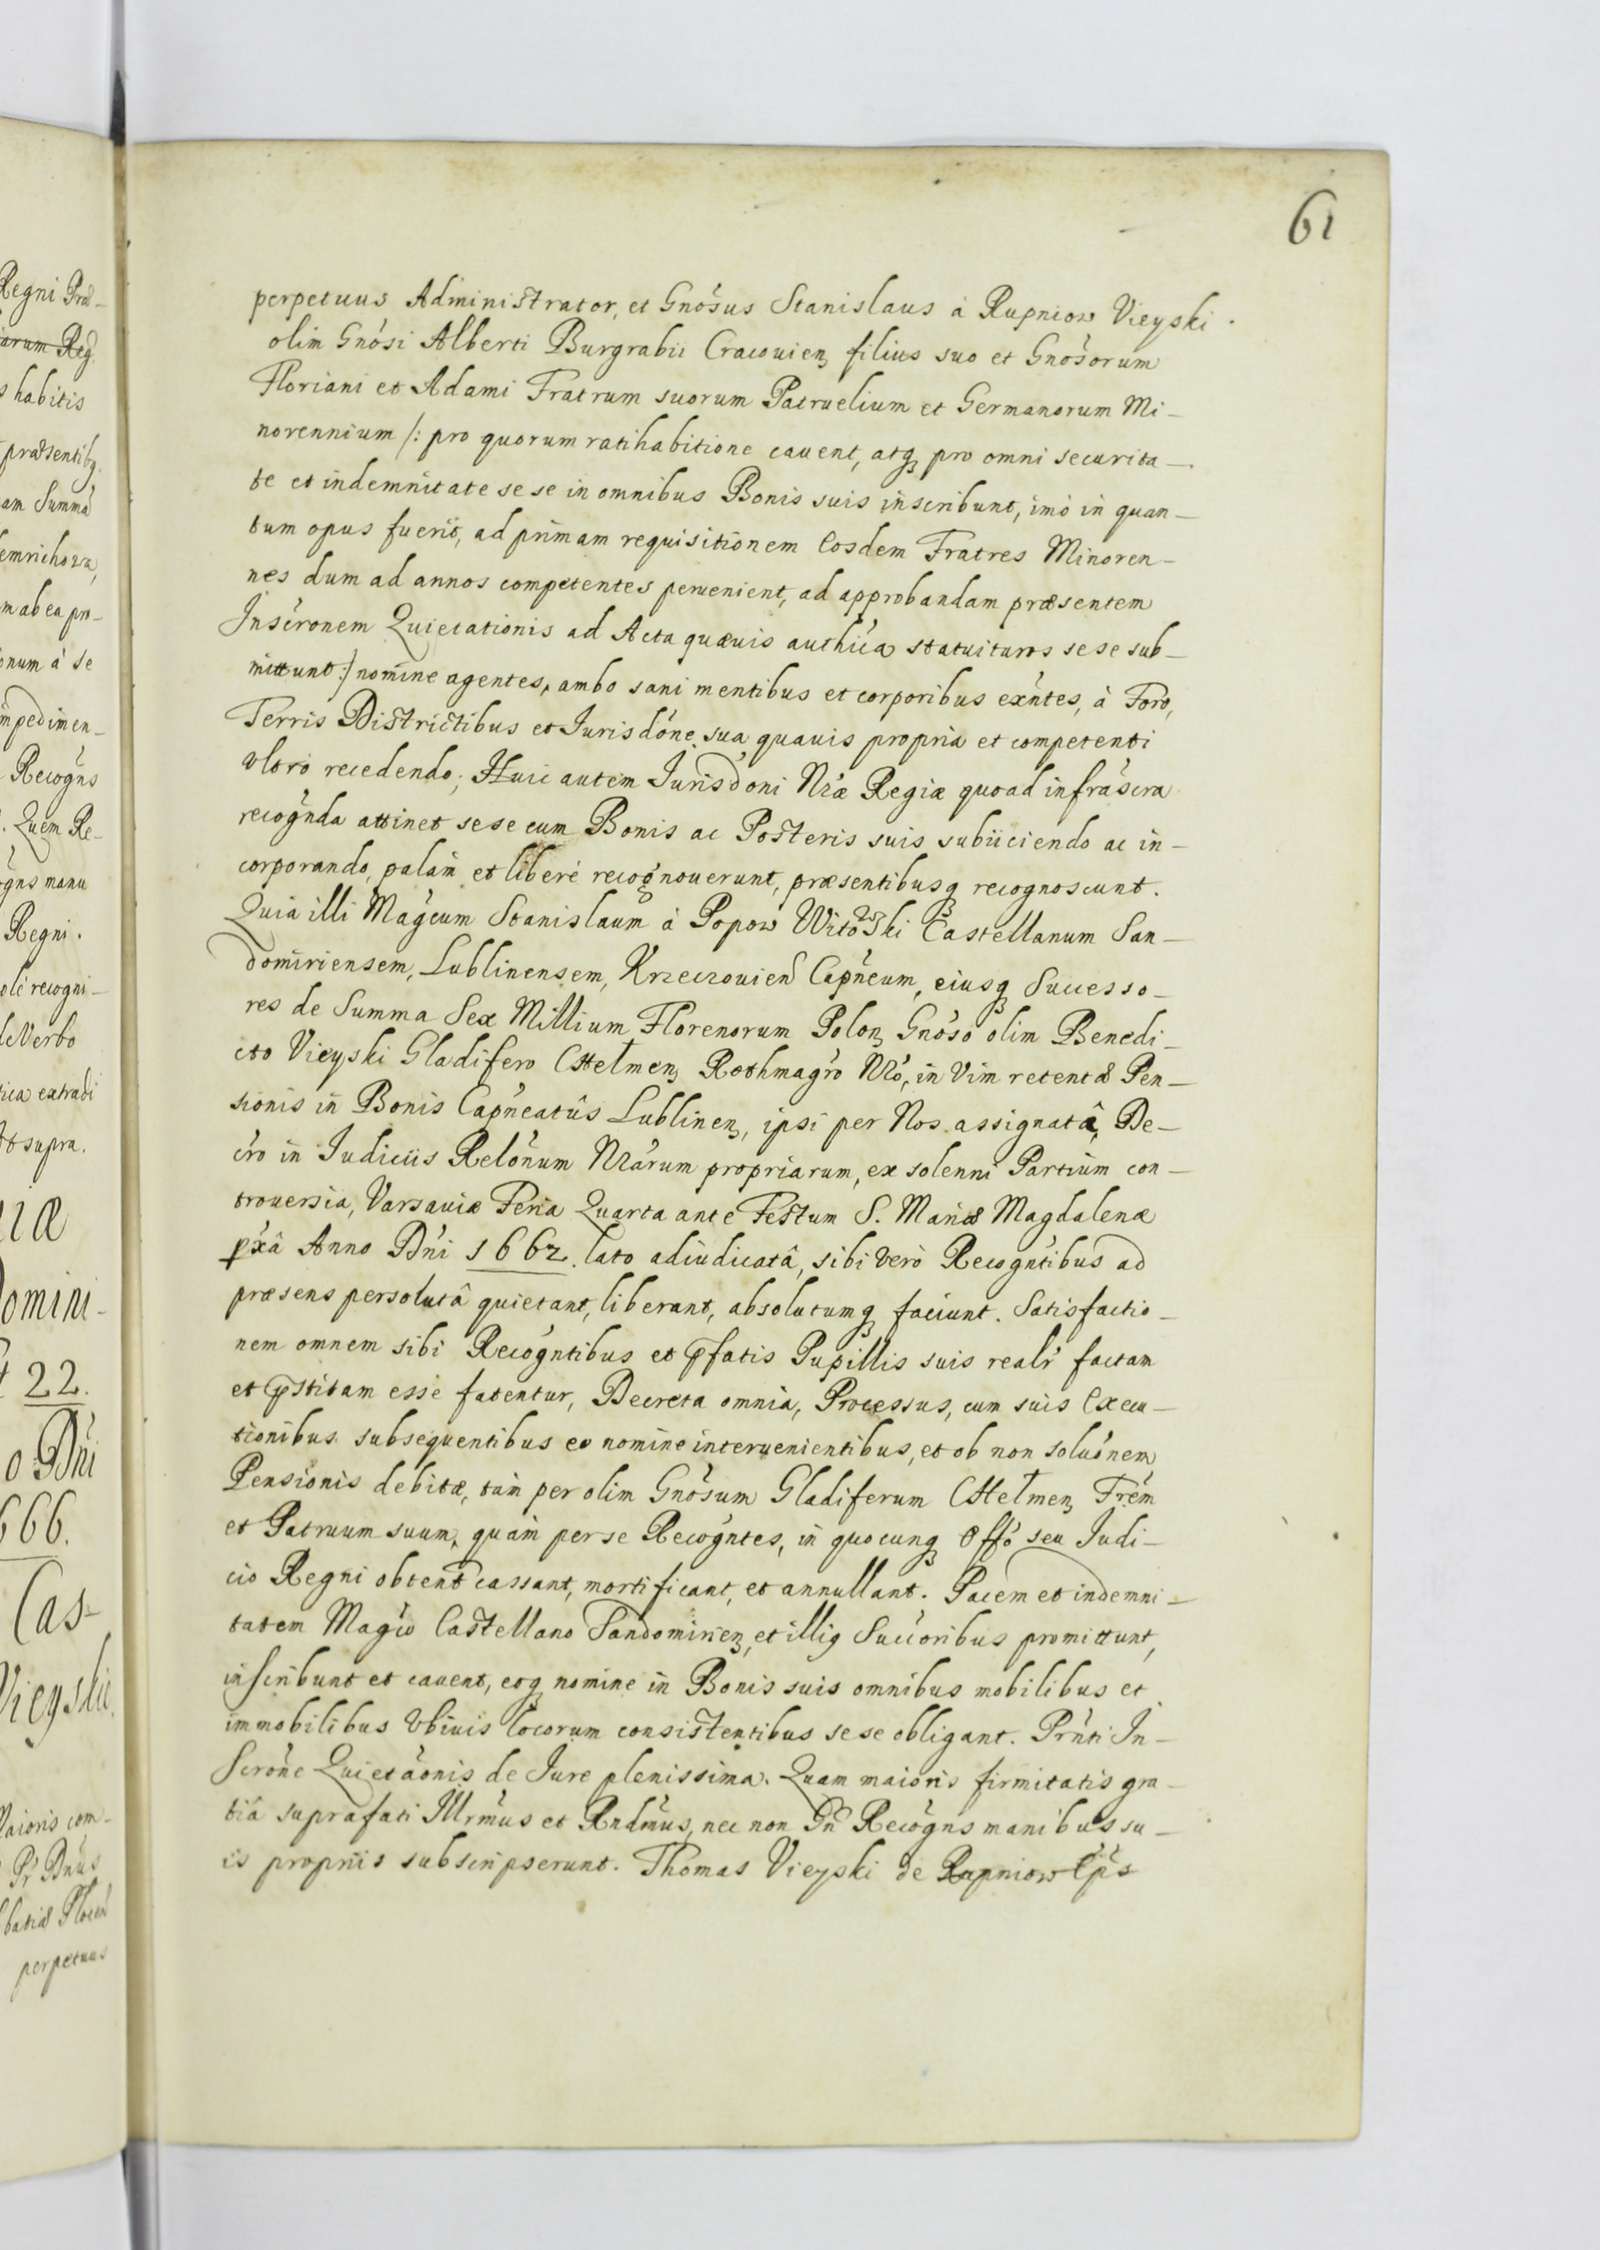 61
perpetuus Administrator, et Gnosus Stanislaus à Rupniow Vieyski
olim Gnosi Alberti Burgrabii Cracouien filius suo et Gnosorum
Floriani et Adami Fratrum suorum Patruelium et Germanorum Mi-
norennium /: pro quorum ratihabitione cauent, atq pro omni securita-
te et indemnitate sese in omnibus Bonis suis inscribunt, imò in quan-
tum opus fuerit, ad primam requisitionem Eosdem Fratres Minoren-
nes dum ad annos competentes peruenient, ad approbandam præsentem
Inscronem Quietationis ad Acta quæuis authica statuituros sese sub-
mittunt :/ nomine agentes, ambo sani mentibus et corporibus exntes, à Foro,
Terris Districtibus et Jurisdone sua quauis propria et competenti
vltrò recedendo; Huic autem Jurisdoni Nræ Regiæ quoad infrascra
recognda attinet sese cum Bonis ac Posteris suis subiiciendo ac in-
corporando, palàm et liberè recognouerunt, præsentibusq recognoscunt.
Quia illi Magcum Stanislaum à Popow Witowski Castellanum San-
domiriensem, Lublinensem, Krzeczouien Capneum, eiusq Successo-
res de Summa Sex Millium Florenorum Polon Gnoso olim Benedi-
cto Vieyski Gladifero Chelmen Rothmagro Nro, in Vim retentæ Pen-
sionis in Bonis Capneatûs Lublinen, ipsi per Nos assignatâ, De-
cro in Judiciis Relonum Nrarum propriarum, ex solenni Partium con-
trouersia, Varsauiæ Feria Quarta ante Festum S. Mariæ Magdalenæ
pxâ Anno Dni 1662. lato adiudicatâ, sibi verò Recogntibus ad
præsens persolutâ quietant, liberant, absolutumq faciunt. Satisfactio-
nem omnem sibi Recogntibus et pfatis Pupillis suis realr factam
et pstitam esse fatentur, Decreta omnia, Processus, cum suis Execu-
tionibus subsequentibus eo nomine interuenientibus, et ob non soluonem
Pensionis debitæ, tàm per olim Gnosum Gladiferum Chelmen Frem
et Patruum suum, quàm per se Recogntes, in quocunq Offo seu Judi-
cio Regni obtent cassant, mortificant, et annullant. Pacem et indemni-
tatem Magco Castellano Sandomirien, et illiq Succoribus promittunt,
inscribunt et cauent, eoq nomine in Bonis suis omnibus mobilibus et
immobilibus vbiuis locorum consistentibus sese obligant. Prnti In-
scrone Quietaonis de Jure plenissima. Quam maioris firmitatis gra-
tia suprafati Illrmus et Rndmus, nec non Gn Recogns manibus su-
is propriis subscripserunt. Thomas Vieyski de Rupniow Eps
Regni Præ-
arum Reg
s habitis
præsentibq
am Summâ
emrichowa,
m ab ea pro-
onum à se
impedimen-
Recogns
. Quem Re-
ogns manu
Regni.
olè recogni-
de Verbo
tica extradi
t supra.
iæ
Domini-
t 22.
o Dni
666.
Cas-
Vieyskie.
Maioris com-
Pr Dnus
batiæ Plocen
perpetuus